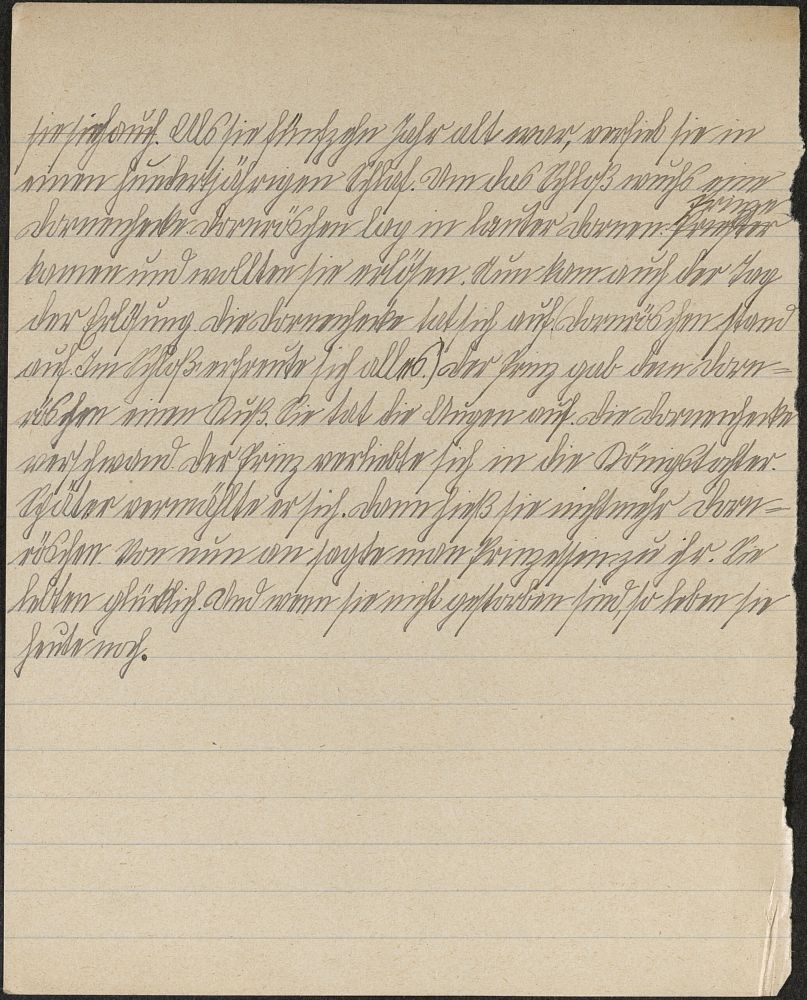 sie sich auch. Als sie fünfzehn Jahr alt war, verfiel sie in
einen hundertjährigen Schlaf. Um das Schloß wuchs eine
Dornenhecke Dornröschen lag in lauter Dornen. Priester Prinze
kamen und wollten sie erlösen. Nun kam auch der Tag
der Erlösung. Die Dornenhecke tat sich auf. (Dornröschen stand
auf. Im Schloß erfreute sich alles.) Der Prinz gab dem Dorn=
röschen einen Kuß. Sie tat die Augen auf. Die Dornenhecke
verschwand. Der Prinz verliebte sich in die Köngstochter.
Später vermählte er sich. Dann hieß sie nicht mehr Dorn=
röschen. Von nun an sagte man Prinzessin zu ihr. Sie
lebten glücklich. Und wenn sie nicht gestorben sind, so leben sie
heute noch.